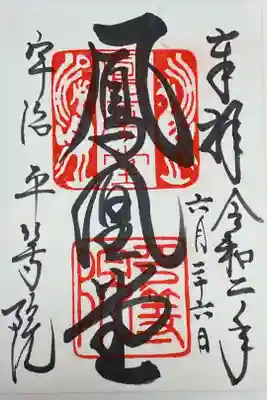 奉拝 令和二年
六月二十六日
鳳凰堂
宇治 平等院